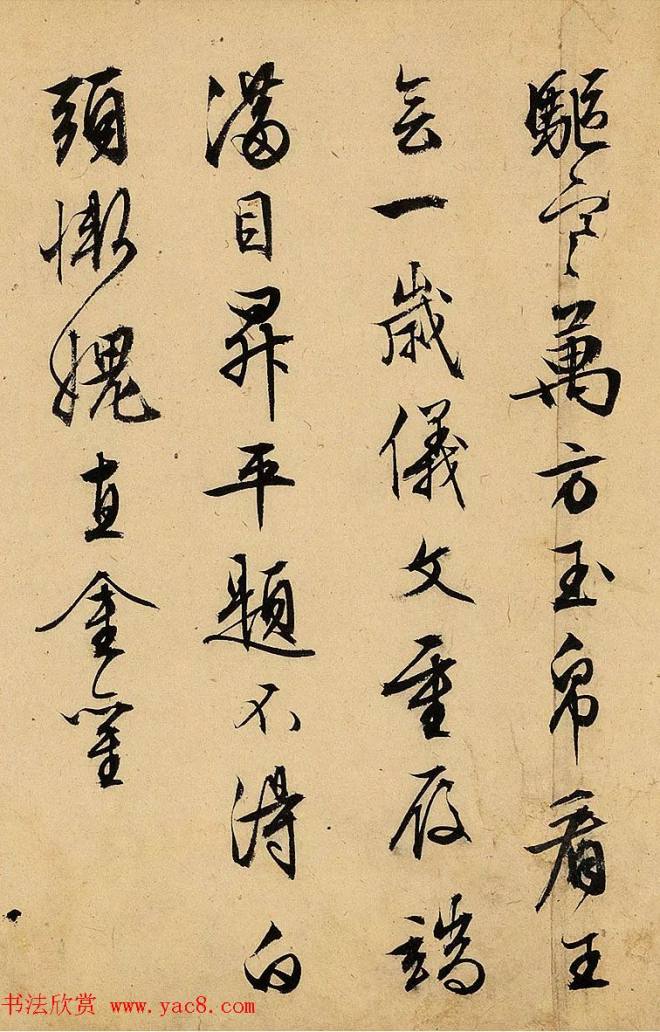 驅寒萬方玉帛看王
會一歲儀文重履端
滿目昇平題不得白
頭慚愧直金鑾
书法欣赏 www.yac8.com